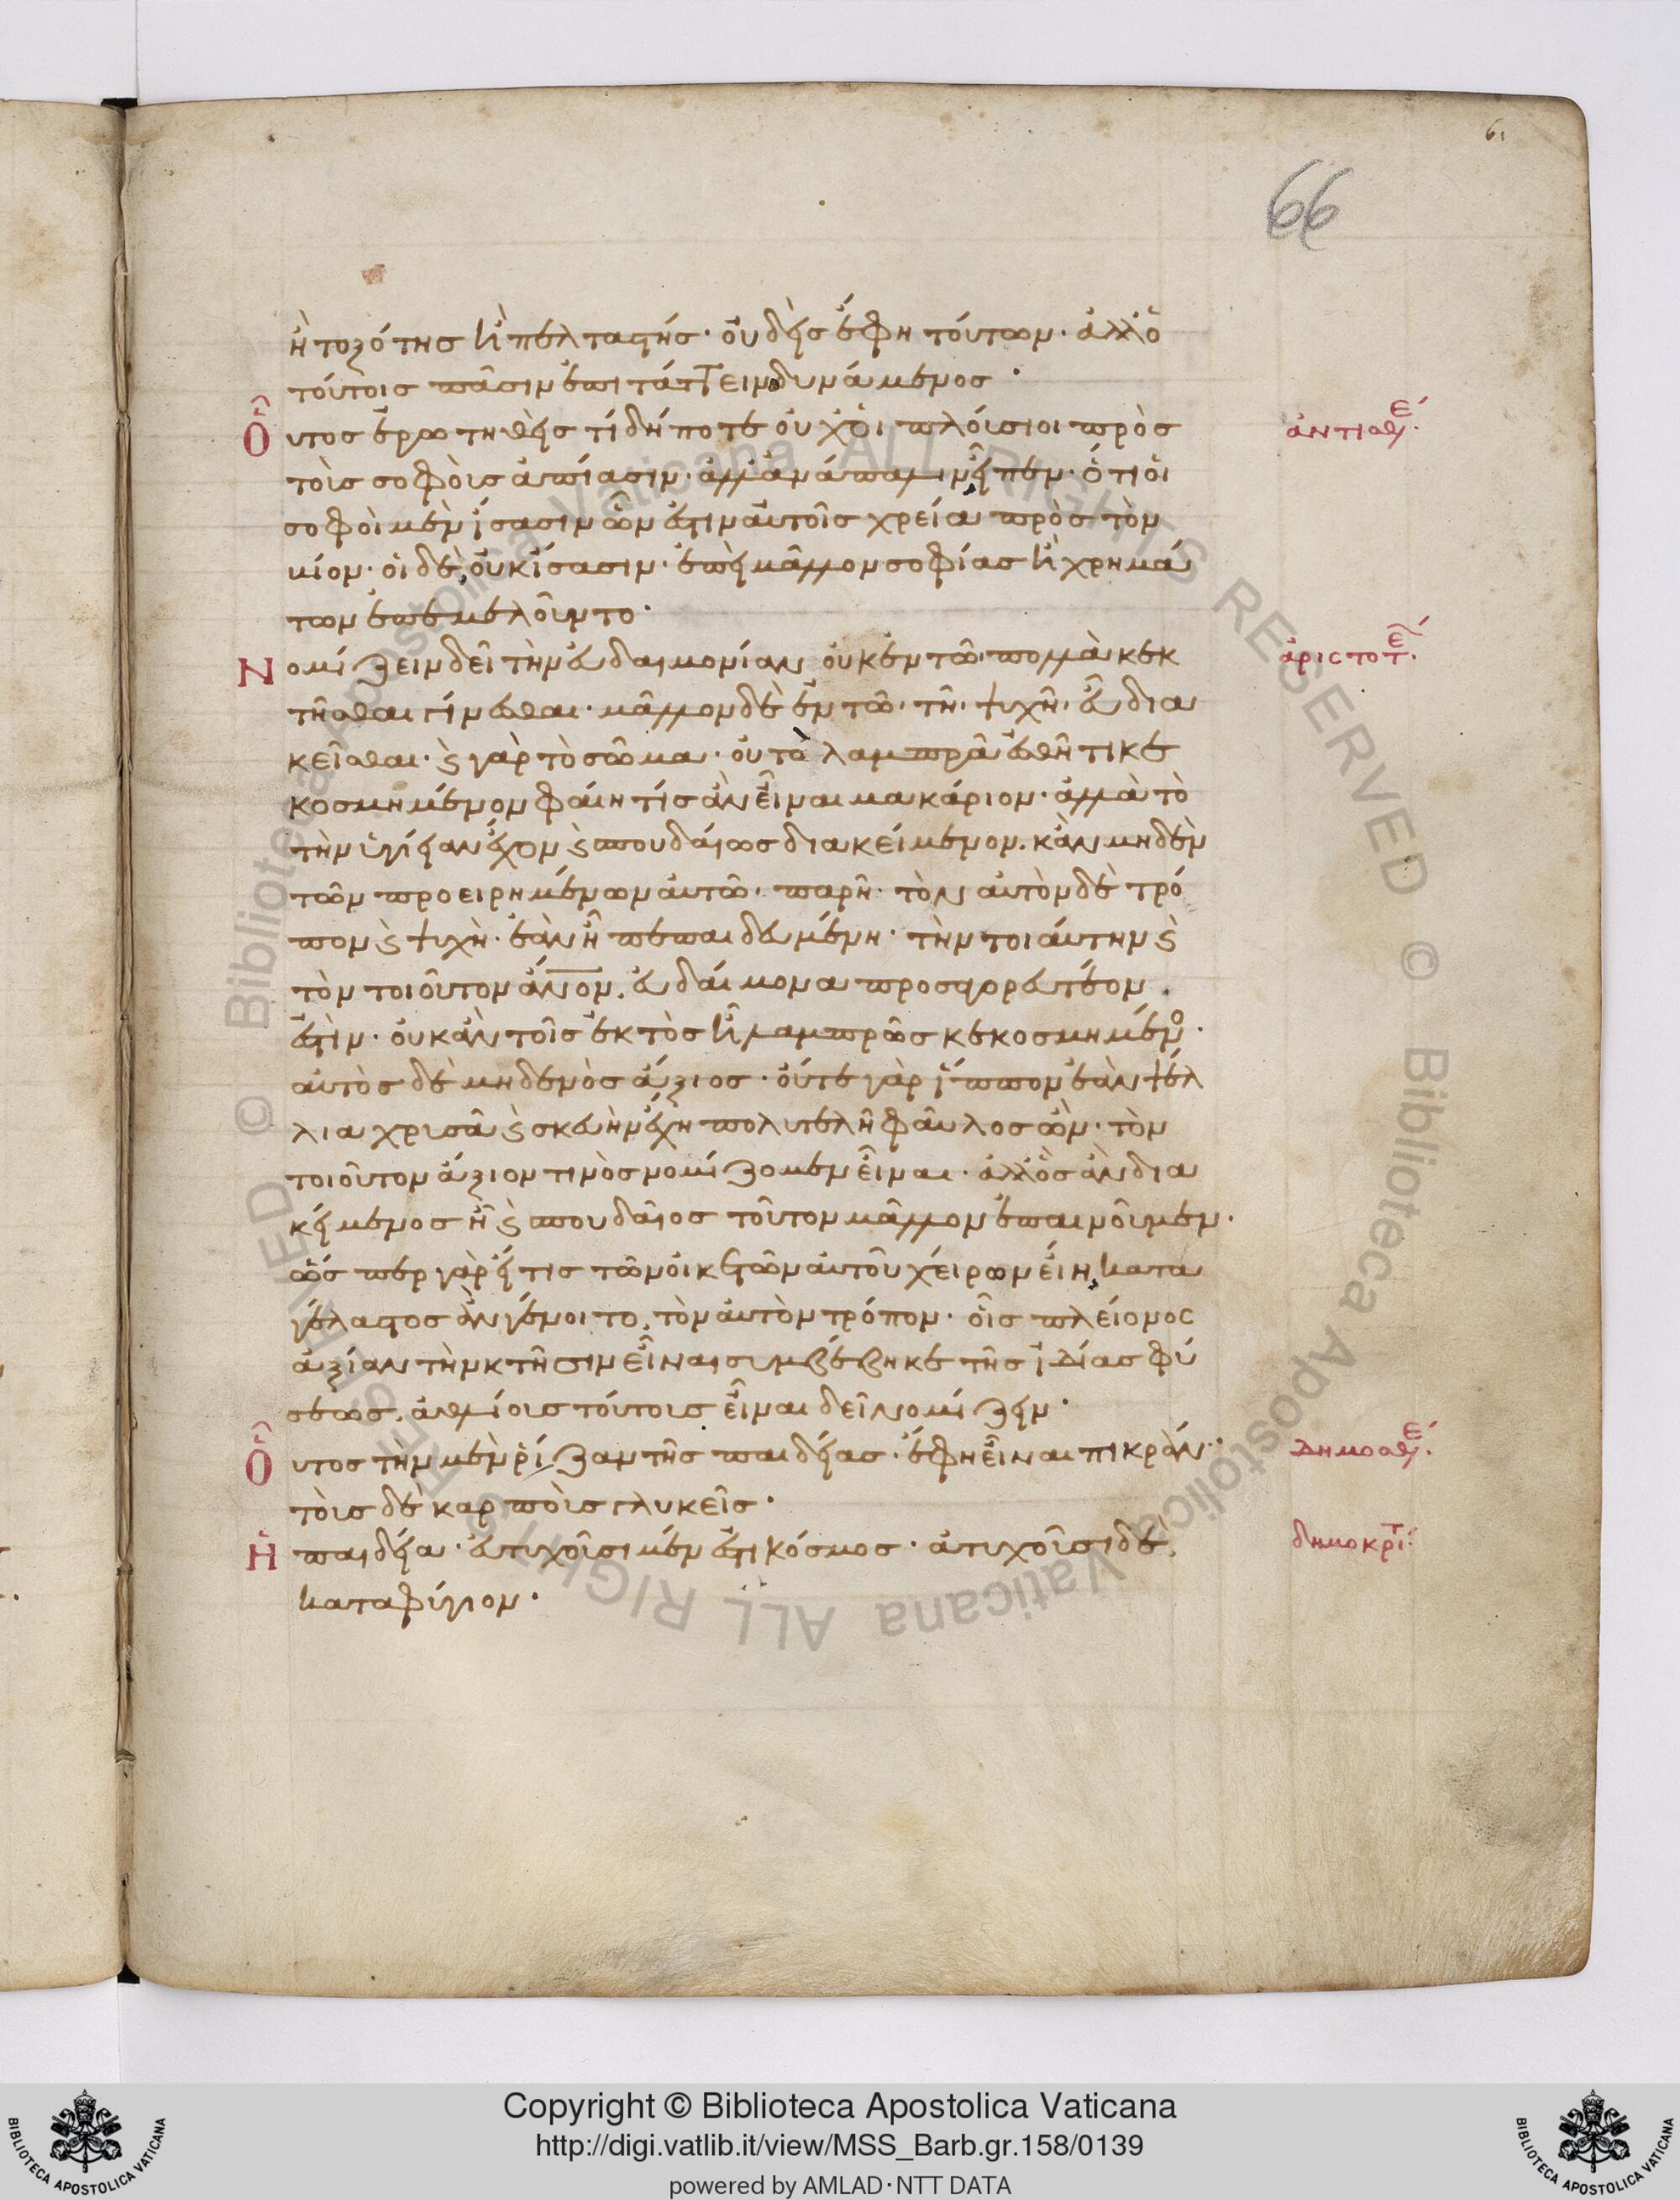 61
66
ἢ τοξότης ἢ πελταστής· οὐδεὶς ἔφη τούτων· ἀλλ' ὁ
τούτοις πᾶσιν ἐπιτάττειν δυνάμενος·
Οὗτος ἐρωτηθεὶς τί δήποτε οὐχ οἱ πλούσιοι πρὸς
ἀντισθέ.
τοὺς σοφοὺς ἀπίασιν· ἀλλ' ἀνάπαλιν εἶπεν· ὅτι οἱ
σοφοὶ μὲν ἴσασιν ὧν ἐστιν αὐτοῖς χρεία πρὸς τὸν
βίον· οἱ δὲ, οὐκ ἴσασιν· ἐπεὶ μᾶλλον σοφίας ἢ χρημά
των ἐπεμελοῦντο·
Νομίζειν δεῖ τὴν εὐδαιμονίαν οὐκ ἐν τῶ πολλὰ κεκ
ἀριστοτέ.
τῆσθαι γίνεσθαι· μᾶλλον δὲ ἐν τῶ, τῆ, ψυχῆ, εὖ δια
κεῖσθαι· ς γὰρ τὸ σῶμα· οὐ τὸ λαμπρᾶ ἐσθῆτι κε
κοσμημένον φαίη τίς ἂν εἶναι μακάριον· ἀλλὰ τὸ
τὴν ὑγίειαν ἔχον ς σπουδαίως διακείμενον. κἂν μηδὲν
τῶν προειρημένων αὐτῶ, παρῆ· τὸν αὐτὸν δὲ τρό
πον ς ψυχὴ· ἐὰν ἦ πεπαιδευμένη· τὴν τοιαύτην ς
τὸν τοιοῦτον ἄνον. εὐδαίμονα προσαγορευτέον.
ἐστὶν· οὐκ ἂν τοῖς ἐκτὸς ἦ λαμπρῶς κεκοσμημένο·
αὐτὸς δὲ μηδενὸς ἄξιος· οὔτε γὰρ ἵππον ἐὰν ψέλ
λια χρυσᾶ ς σκευὴν ἔχη πολυτελῆ φαῦλος ὢν· τὸν
τοιοῦτον ἄξιον τινὸς νομίζομεν εἶναι· ἀλλ' ὃς ἂν δια
κείμενος ἦ σπουδαῖος τοῦτον μᾶλλον ἐπαινοῦμεν·
ὥσπερ γὰρ εἴ τις τῶν οἰκετῶν αὐτοῦ χείρων εἴη, κατα
γέλαστος ἂν γένοιτο, τὸν αὐτὸν τρόπον· οἷς πλείονος
ἀξίαν τὴν κτῆσιν εἶναι συμβέβηκε τῆς ἰδίας φύ
σεως, ἀθλίους τούτους εἶναι δεῖ νομίζειν·
Οὗτος τὴν μὲν ῥίζαν τῆς παιδείας· ἔφη εἶναι πικράν·
Δημοσθέ.
τοὺς δὲ καρποὺς γλυκεῖς·
Ἡ παιδεία· εὐτυχοῦσι μέν ἐστι κόσμος· ἀτυχοῦσι δὲ,
δημοκρίτ.
καταφύγιον·
Copyright © Biblioteca Apostolica Vaticana
http://digi.vatlib.it/view/MSS_Barb.gr.158/0139
powered by AMLAD·NTT DATA
BIBLIOTECA APOSTOLICA VATICANA
BIBLIOTECA APOSTOLICA VATICANA
© Biblioteca Apostolica Vaticana ALL RIGHTS RESERVED © Biblioteca Apostolica Vaticana ALL RIGHTS RESERVED